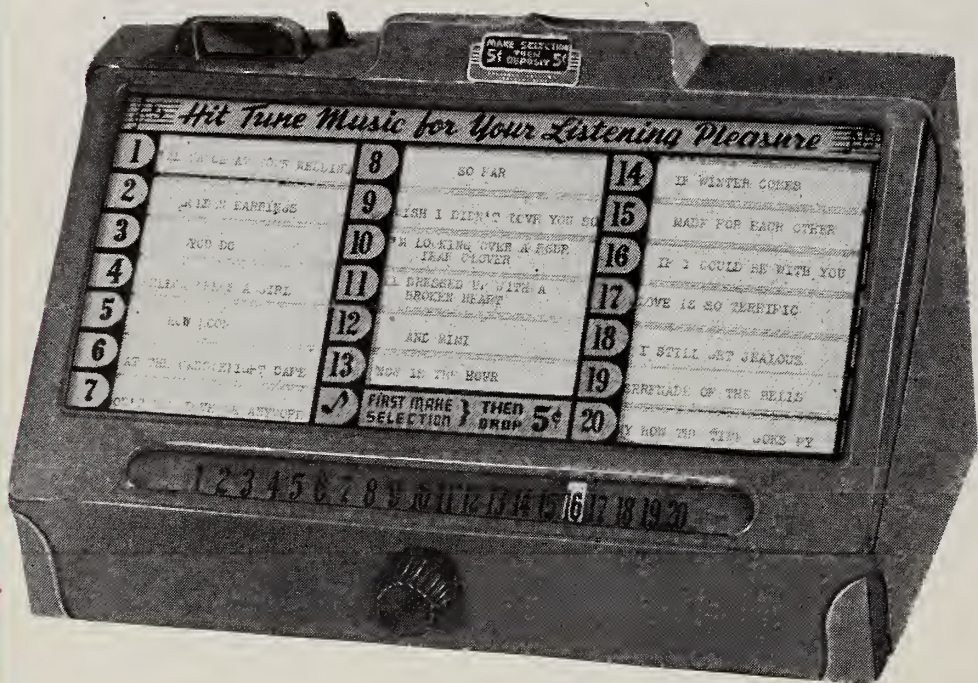 MAKE SELECTION
THEN
5¢ DEPOSIT 5¢
Hit Tune Music for Your Listening Pleasure
1
2
EARRINGS
3
YOU DO
4
A GIRL
5
6
AT THE CANDLELIGHT CAFE
7
ANYMORE
8 SO FAR
9 WISH I DIDN'T LOVE YOU SO
10 I'M LOOKING OVER A FOUR
LEAF CLOVER
11 DRESSED UP WITH A
BROKEN HEART
12 AND MIMI
13 NOW IS THE HOUR
FIRST MAKE
SELECTION } THEN
DROP 5¢
14 IF WINTER COMES
15 MADE FOR EACH OTHER
16 IF I COULD BE WITH YOU
17 LOVE IS SO TERRIFIC
18 I STILL GET JEALOUS
19 SERENADE OF THE BELLS
20 MY HOW THE TIME GOES BY
1 2 3 4 5 6 7 8 9 10 11 12 13 14 15 16 17 18 19 20